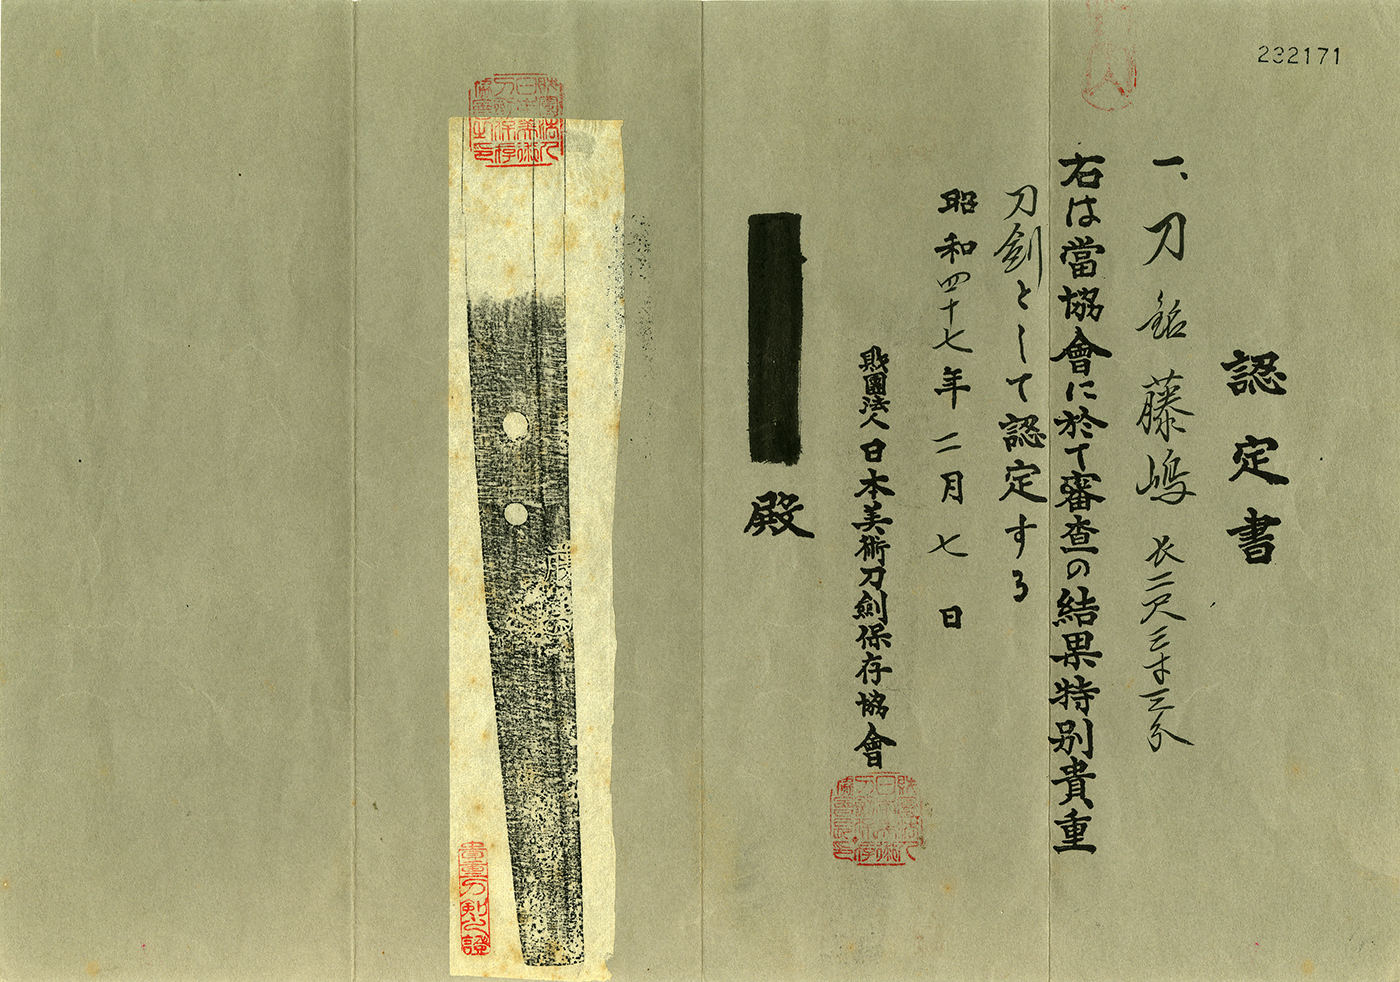 232171
認定書
一、刀 銘 藤嶋 長二尺三寸三分
右は當協會に於て審査の結果特別貴重
刀剣として認定する
昭和四十七年二月七日
財團法人日本美術刀劍保存協會
殿
財團法人日本美術刀剣保存
藤嶋
貴重刀剣之證